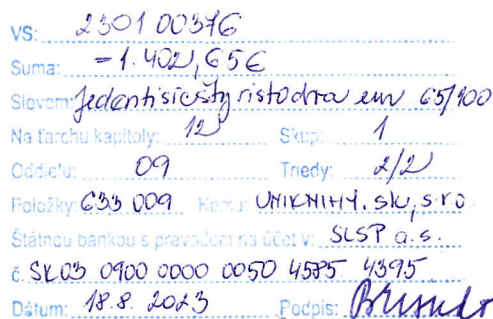 VS: 2301 00376
Suma: =1.402,65€
Slovom: Jedentisícštyristodva eur 65/100
Na ťarchu kapitoly: 12 Skup: 1
Oddielu: 09 Triedy: 2/2
Položky: 633 009 Komu: UNIKNIHY.sk, s.r.o
Štátnou bankou s prevodom na účet v: SLSP a.s.
č. SK03 0900 0000 0050 4585 4395
Dátum: 18.8. 2023 Podpis: